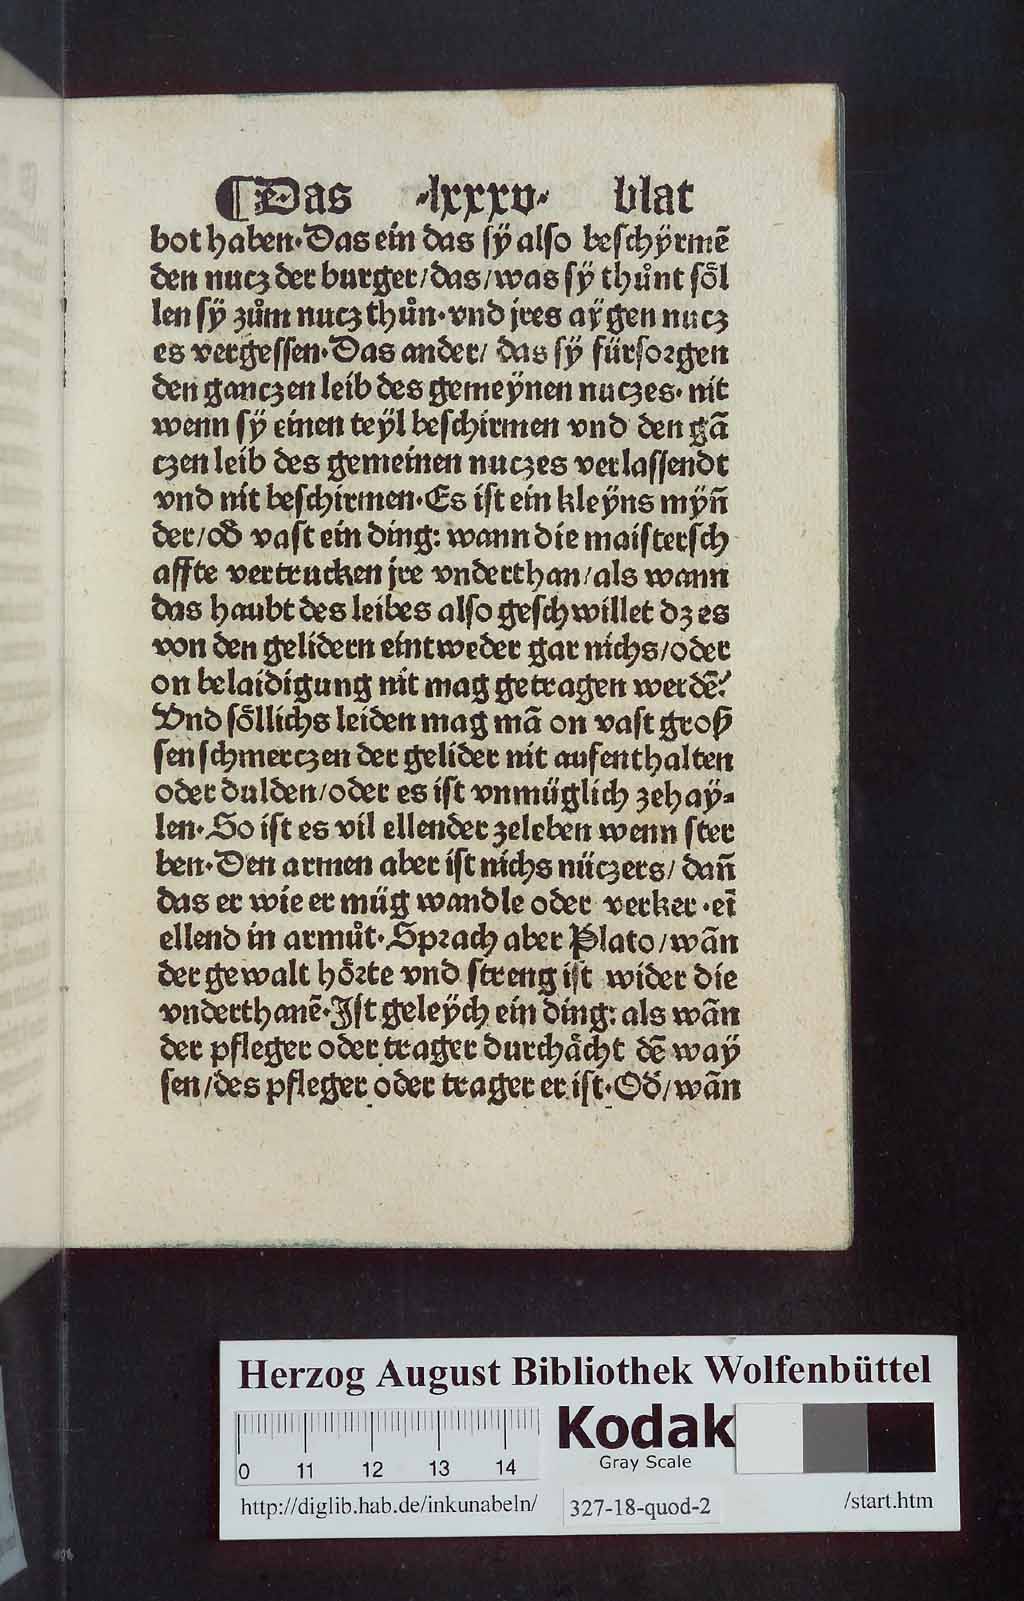 ¶Das ·lxxxv· blat
bot haben·Das ein das sÿ also beschÿrmē
den nucz der burger/das/was sÿ thůnt söl
len sÿ zům nucz thůn·vnd jres aÿgen nucz
es vergessen·Das ander/ das sÿ fürsorgen
den ganczen leib des gemeÿnen nuczes·nit
wenn sÿ einen teÿl beschirmen vnd den gā
czen leib des gemeinen nuczes verlassendt
vnd nit beschirmen·Es ist ein kleÿns mÿn̄
der/od̄ vast ein ding: wann die maistersch
affte vertrucken jre vnderthan/als wann
das haubt des leibes also geschwillet dz es
von den gelidern eintweder gar nichs/oder
on belaidigung nit mag getragen werdē?
Vnd söllichs leiden mag mā on vast groß
sen schmerczen der gelider nit aufenthalten
oder dulden/oder es ist vnmüglich zehaÿ-
len·So ist es vil ellender zeleben wenn ster
ben·Den armen aber ist nichs nüczers/ dan̄
das er wie er müg wandle oder verker·ei̅
ellend in armůt·Sprach aber Plato/wān
der gewalt hörte vnd streng ist wider die
vnderthanē·Jst geleÿch ein ding: als wān
der pfleger oder trager durchächt dē waÿ
sen/des pfleger oder trager er ist·Od̄/wān
Herzog August Bibliothek Wolfenbüttel
Kodak
Gray Scale
0 11 12 13 14
http://diglib.hab.de/inkunabeln/ 327-18-quod-2 /start.htm